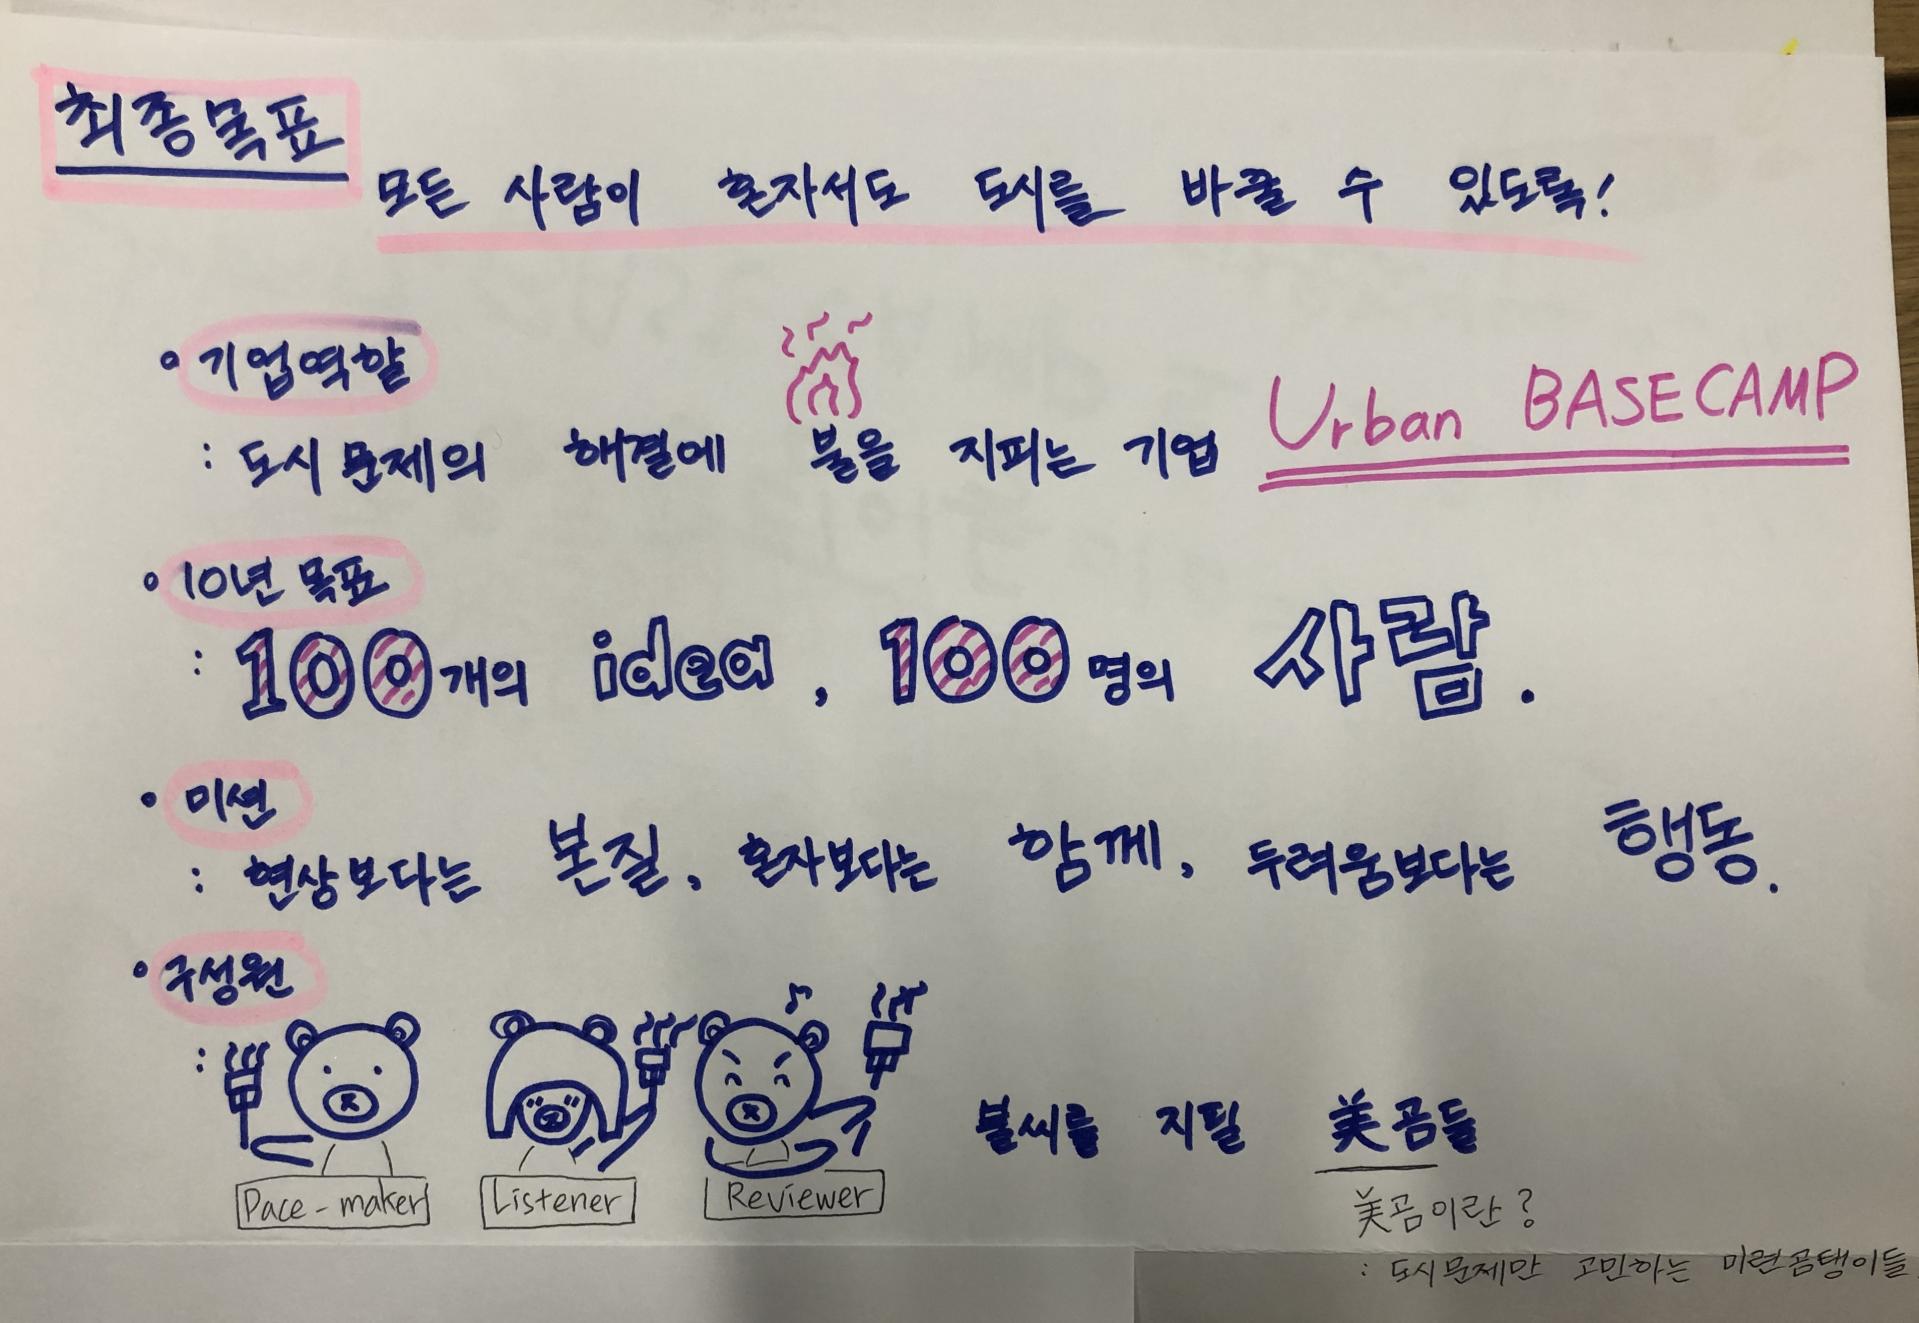 최종목표
모든 사람이 혼자서도 도시를 바꿀 수 있도록!
• 기업역할
: 도시 문제의 해결에 불을 지피는 기업 Urban BASECAMP
• 10년 목표
: 100개의 idea, 100명의 사람.
• 미션
: 현상보다는 본질, 혼자보다는 함께, 두려움보다는 행동.
• 구성원
: 불씨를 지필 美곰들
Pace-maker Listener Reviewer
美곰이란?
: 도시문제만 고민하는 미련곰탱이들